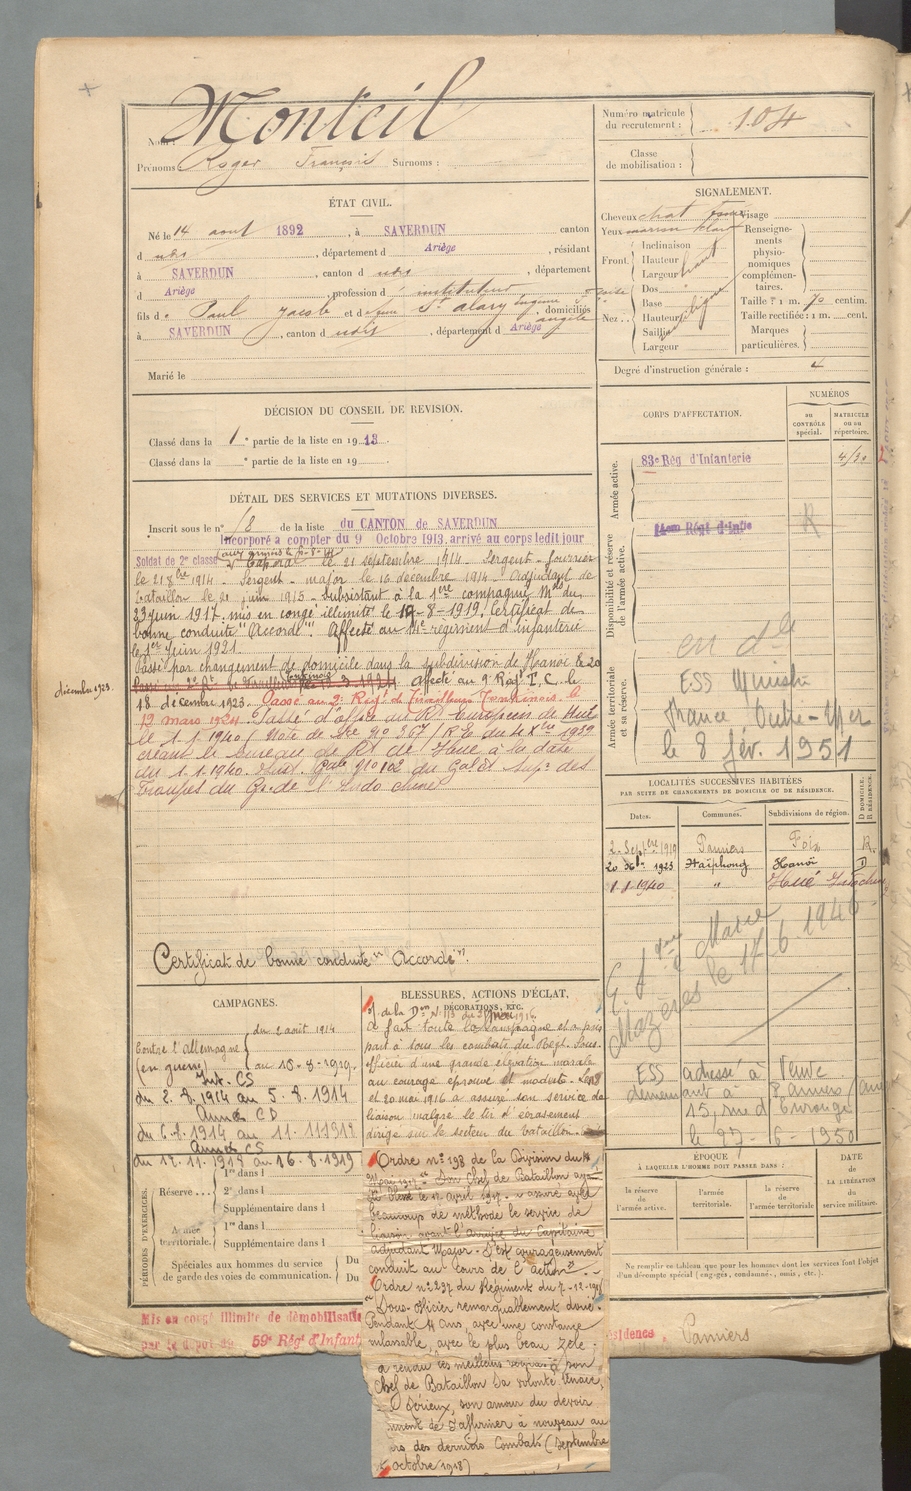 Nom : Monteil
Prénoms Roger François Surnoms :
Numéro matricule du recrutement : 104
Classe de mobilisation :
ÉTAT CIVIL.
Né le 14 aout 1892, à SAVERDUN canton
d udis, département d Ariège, résidant
à SAVERDUN, canton d udis, département
d Ariège, profession d instituteur
fils d Paul Jacob et d St Alary Eugénie, domiciliés
à SAVERDUN, canton d udis, département d Ariège
Marié le
SIGNALEMENT.
Cheveux chat Visage
Yeux marron clair
Front. Inclinaison
Hauteur
Largeur haut
Nez.. Dos
Base
Hauteur
Saillie
Largeur
Renseignements physionomiques complémentaires.
Taille : 1 m. 70 centim.
Taille rectifiée : 1 m. cent.
Marques particulières.
Degré d'instruction générale : 4
DÉCISION DU CONSEIL DE REVISION.
Classé dans la 1e partie de la liste en 1913.
Classé dans la e partie de la liste en 19
CORPS D'AFFECTATION.
NUMÉROS
au CONTRÔLE spécial.
MATRICULE ou au répertoire.
Armée active.
83e Rég d'Infanterie
Disponibilité et réserve de l'armée active.
14eme Régt d'Infie
R
Armée territoriale et sa réserve.
ESS
France Outre-Mer
le 8 fév. 1951
DÉTAIL DES SERVICES ET MUTATIONS DIVERSES.
Inscrit sous le n° 18 de la liste du CANTON de SAVERDUN
Incorporé a compter du 9 Octobre 1913, arrivé au corps ledit jour
Soldat de 2e classe Caporal le 21 septembre 1914 - Sergent - fourrier
le 21 8bre 1914 - Sergent - major le 16 décembre 1914 - Adjudant de
Bataillon le 21 juin 1915 - Subsistant à la 1ère compagnie Mses du
23 juin 1917. mis en congé illimité le 17-8-1919. Certificat de
bonne conduite "Accordé". Affecté au 14e régiment d'infanterie
le 1er Juin 1921.
Passé par changement de domicile dans la subdivision de Hanoï le 20
décembre 1923.
affecté au 9e Regt I.C. le
18 décembre 1923. Passé au 2e Régt de Tirailleurs Tonkinois le
19 mars 1924. Passé d'office au Rt Européen de Hué
le 1.1.1940 (Note de Sre no 367/RE du 4 Xbre 1939
créant le bureau de Rt de Hué à la date
du 1.1.1940. Inst. Gale 910102 du Gal Ct Supr des
Troupes du Gr. de l'Indo chine
Certificat de bonne conduite "Accordé".
LOCALITÉS SUCCESSIVES HABITÉES
PAR SUITE DE CHANGEMENTS DE DOMICILE OU DE RÉSIDENCE.
Dates. Communes. Subdivisions de région. D DOMICILE. R RÉSIDENCE.
2 Septbre 1919 Pamiers Foix R.
20 Xbre 1923 Haïphong Hanoï D
1.1.1940 " Hué Indochine
Mazères le 17.6.1946
ESS adressé à Veuve
demeurant à Pamiers
15, rue d
le 27-6-1950
CAMPAGNES.
Contre l'Allemagne du 2 août 1914
(en guerre) au 10-8-1919.
Int. CS
du 2.8.1914 au 5.8.1914
Armées CD
du 6.8.1914 au 11.11.1918
Armées CS
du 12.11.1918 au 16.8.1919
BLESSURES, ACTIONS D'ÉCLAT, DÉCORATIONS, ETC.
a fait toute la campagne et a pris
part à tous les combats du Régt. Sous-
officier d'une grande élévation morale
au courage éprouvé et modeste.
et 20 mai 1916 a assuré son service de
liaison malgré le tir d'écrasement
dirigé sur le secteur du bataillon.
Ordre no 198 de la Division du
Mai 1917. Son Chef de Bataillon
blessé le 17 avril 1917. a assuré avec
beaucoup de méthode le service de
liaison avant l'arrivée du Capitaine
adjudant Major. S'est courageusement
conduit au cours de l'action".
Ordre no 237 du Régiment du 7-12-1918
"Sous-Officier remarquablement doué.
Pendant 4 ans, avec une constance
inlassable, avec le plus beau zèle.
a rendu les meilleurs services à son
Chef de Bataillon. Sa volonté tenace,
sérieux, son amour du devoir
de s'affirmer à nouveau au
des derniers Combats (Septembre
octobre 1918)
PÉRIODES D'EXERCICES.
Réserve... 1re dans l
2e dans l
Supplémentaire dans l
Armée territoriale. 1re dans l
Supplémentaire dans l
Spéciales aux hommes du service de garde des voies de communication. Du
Du
ÉPOQUE
À LAQUELLE L'HOMME DOIT PASSER DANS :
la réserve de l'armée active.
l'armée territoriale.
la réserve de l'armée territoriale
DATE de LA LIBÉRATION du service militaire.
Ne remplir ce tableau que pour les hommes dont les services font l'objet d'un décompte spécial (engagés, condamnés, omis, etc.).
Mis en congé illimité de démobilisation
par le dépôt du 59e Régt d'Infant
résidence Pamiers